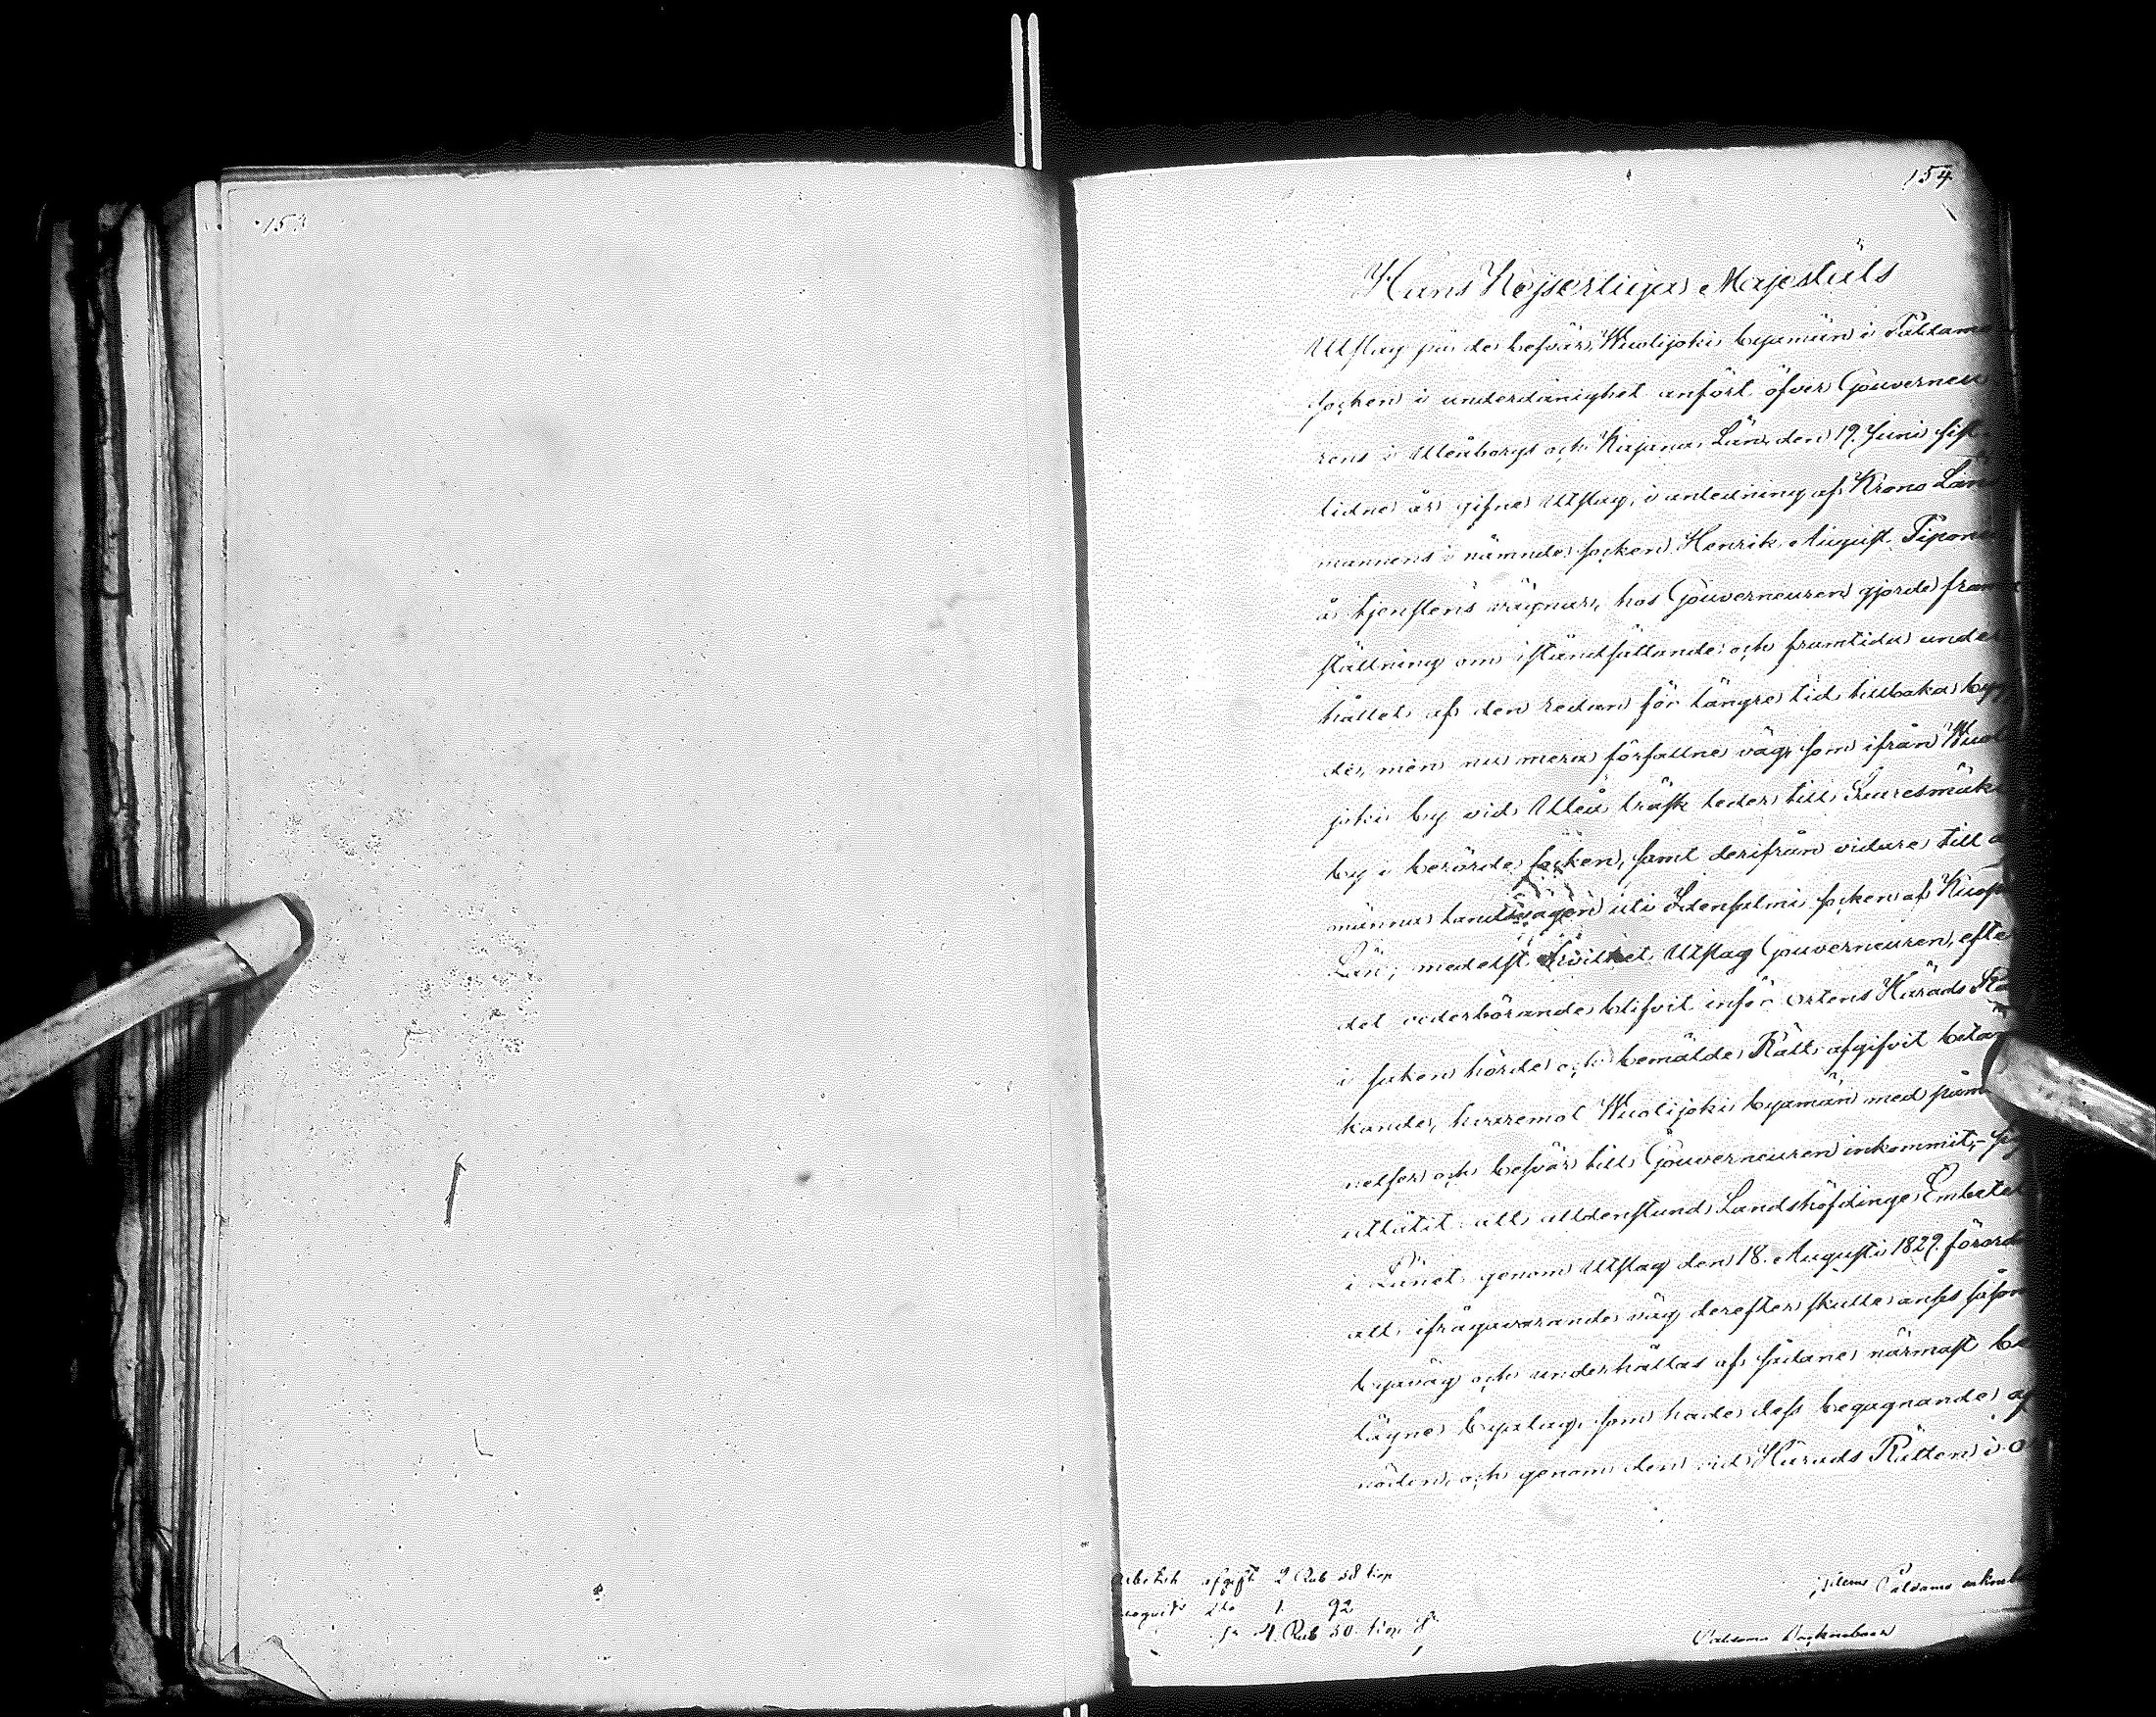 153
154
Hans Kejserliga Majestäts
Utslag på de besvär, Wuolijoki byamän i Paldamo
socken i underdånighet anfört öfver Gouverneu
rens i Uleåborgs och Kajana Län den 19. Junii sist
lidne år gifne Utslag, i anledning af Krono Läns
mannens i nämnde socken Henrik August Piponii
å tjenstens vägnar, hos Gouverneuren gjorde fram
ställning om iståndsättande och framtida under
hållet af den redan för längre tid tillbaka byg
de, men nu mera förfallne väg, som ifrån Wuoli
joki by vid Uleå träsk leder till Saaresmäki
by i berörde socken, samt derifrån vidare till a
männa landsvägen uti Idensalmi socken af Kuopio
Län; medelst hvilket Utslag Gouverneuren, efter
det vederbörande blifvit inför ortens Härads Rä
i saken hörde och bemälde Rätt afgifvit betän
kande, hvaremot Wuolijoki byamän med påmin
nelser och besvär till Gouverneuren inkommit, sig
utlåtit: att alldenstund Landshöfdinge Embetet
i Länet genom Utslag den 18. Augusti 1829. förord
att ifrågavarande väg derefter skulle anses såsom
byaväg och underhållas af sådane närmast be
lägne byalag, som hade dess begagnande af
nöden, och genom den vid Härads Rätten i o
afgift 2 Rub 58 kop
dito 1. 92
Sa 4. Rub 50. kop S
Paldamo
Paldamo Sockneboer